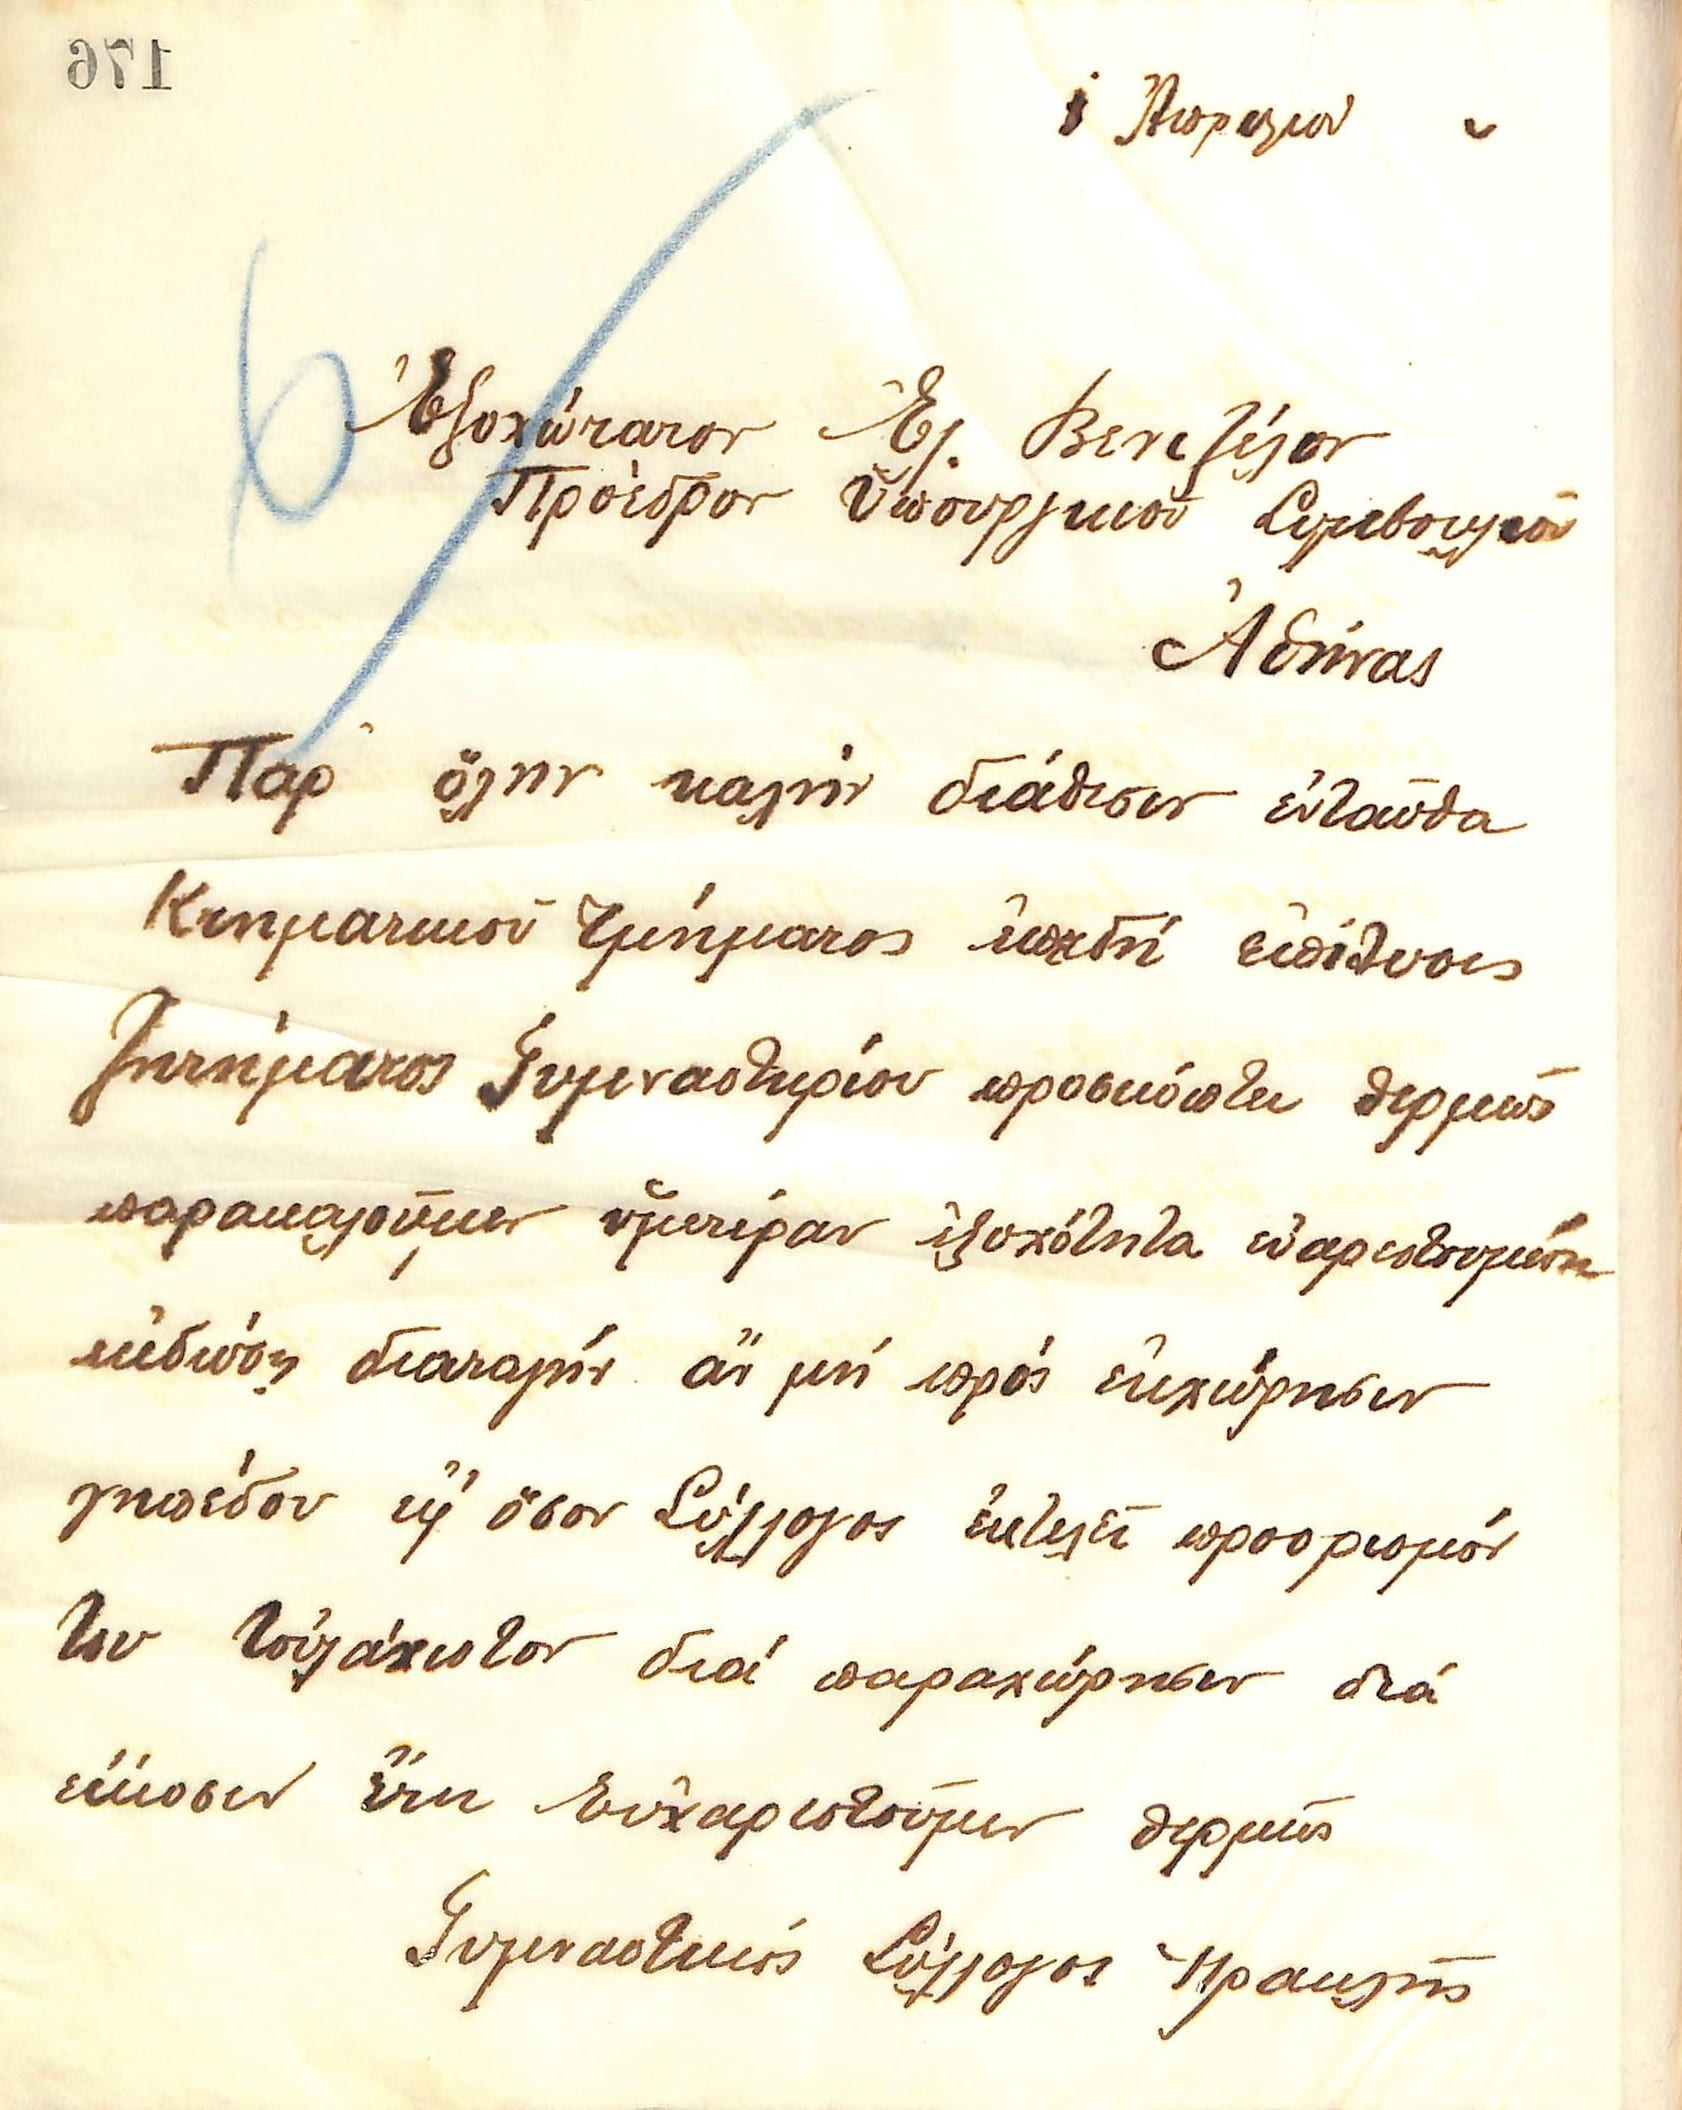 176
Ἀπριλίου
Ἐξοχώτατον Ἐλ. Βενιζέλον
Πρόεδρον Ὑπουργικοῦ Συμβουλίου
Ἀθήνας
Παρ' ὅλην καλήν διάθεσιν ἐνταῦθα
Κτηματικοῦ τμήματος ἐπειδή ἐπίλυσις
ζητήματος Γυμναστηρίου προσκόπτει θερμῶς
παρακαλοῦμεν ὑμετέραν ἐξοχότητα εὐαρεστουμένη
ἐκδώσῃ διαταγήν ἄν μή πρός ἐκχώρησιν
γηπέδου ἐφ' ὅσον Σύλλογος ἐκτελεῖ προορισμόν
του τοὐλάχιστον διά παραχώρησιν διά
εἴκοσιν ἔτη Εὐχαριστοῦμεν θερμῶς
Γυμναστικός Σύλλογος Ἡρακλῆς